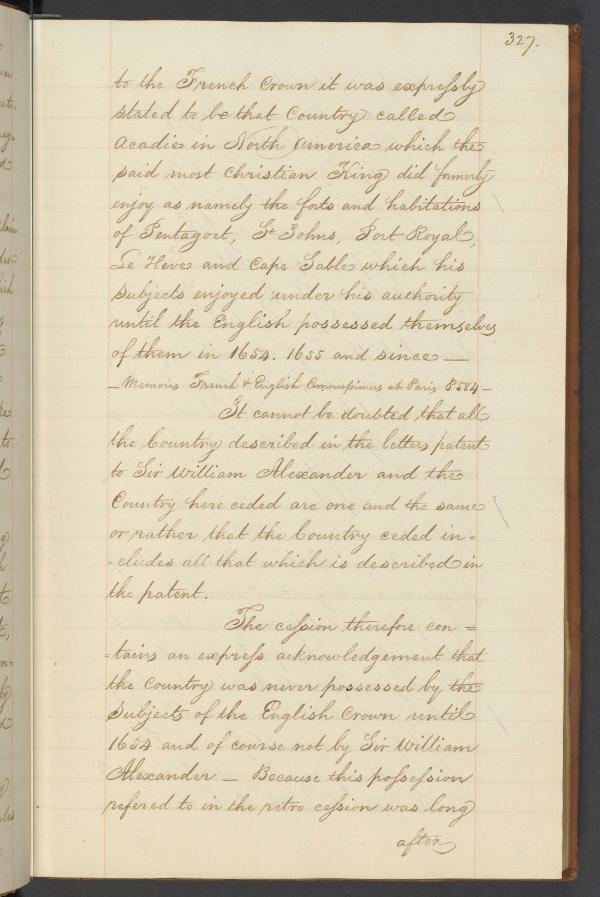 327.
to the French Crown it was expressly
stated to be that Country called
Acadie in North America which the
said most Christian King did formerly
enjoy as namely the forts and habitations
of Pentagoet, St Johns, Port Royal,
Le Heve and Cape Sable which his
Subjects enjoyed under his authority
until the English possessed themselves
of them in 1654. 1655 and since —
— Memoirs French & English at Paris —
It cannot be doubted that all
the Country described in the letters patent
to Sir William Alexander and the
Country here ceded are one and the same
or rather that the Country ceded in=
=cludes all that which is described in
the patent.
The cession therefore con=
=tains an express acknowledgement that
the Country was never possessed by the
Subjects of the English Crown until
1654 and of course not by Sir William
Alexander — Because this possession
refered to in the retro cession was long
after